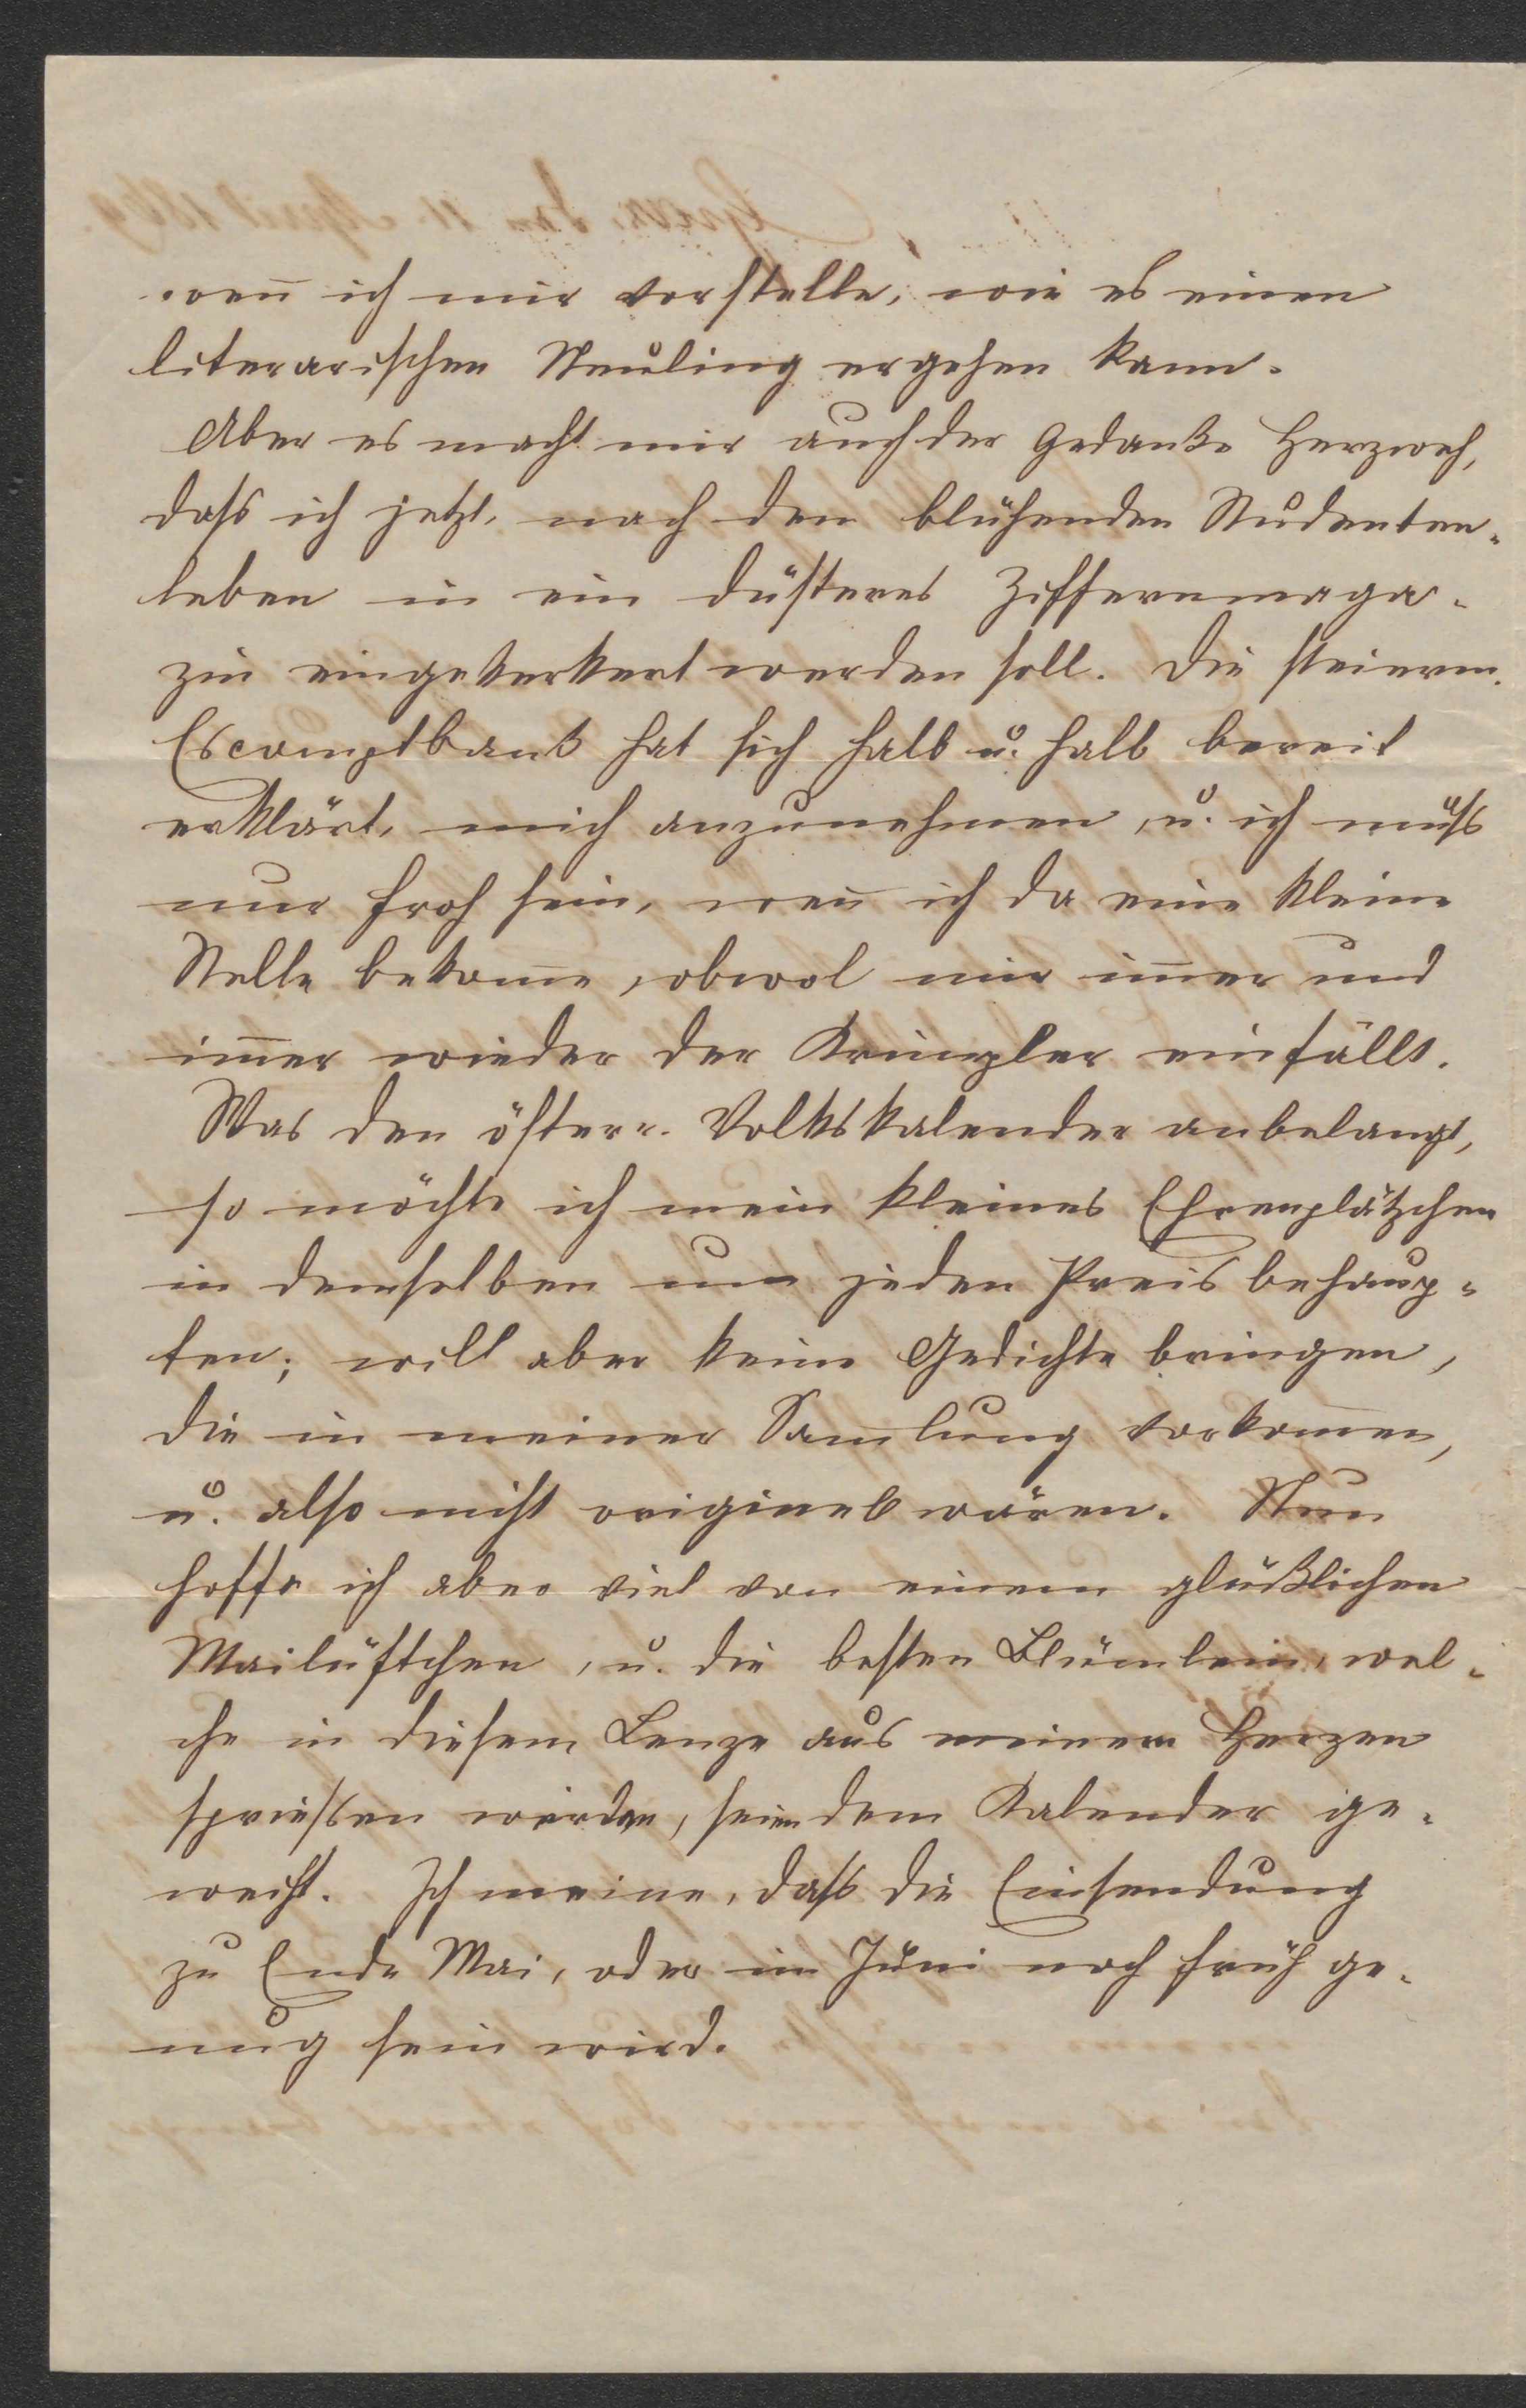 wen̄ ich mir vorstelle, wie es einen
literarischen Neuling ergehen kann.
Aber es macht mir auch der Gedanke Herzweh,
dass ich jetzt, nach dem blühenden Studenten-
leben in ein düsteres Ziffernmaga-
zin eingekerkert werden soll. Die steierm.
Escomptbank hat sich halb u. halb bereit
erklärt, mich anzunehmen, u. ich muss
nur froh sein, wen̄ ich da eine kleine
Stelle bekom̄e, obwol mir im̄er und
im̄er wieder der Krimpler einfällt.
Was den österr. Volkskalender anbelangt,
so möchte ich mein kleines Ehrenplätzchen
in demselben um jeden Preis behaup-
ten; will aber keine Gedichte bringen,
die in meiner Sam̄lung vorkom̄en,
u. also nicht originel wären. Nun
hoffe ich aber viel von einem glücklichen
Mailüftchen, u. die besten Blümlein, wel-
che in diesem Lenze aus meinem Herzen
spriessen würden, seien dem Kalender ge-
weiht. Ich meine, dass die Einsendung
zu Ende Mai, oder im Juni noch früh ge-
nug sein wird.